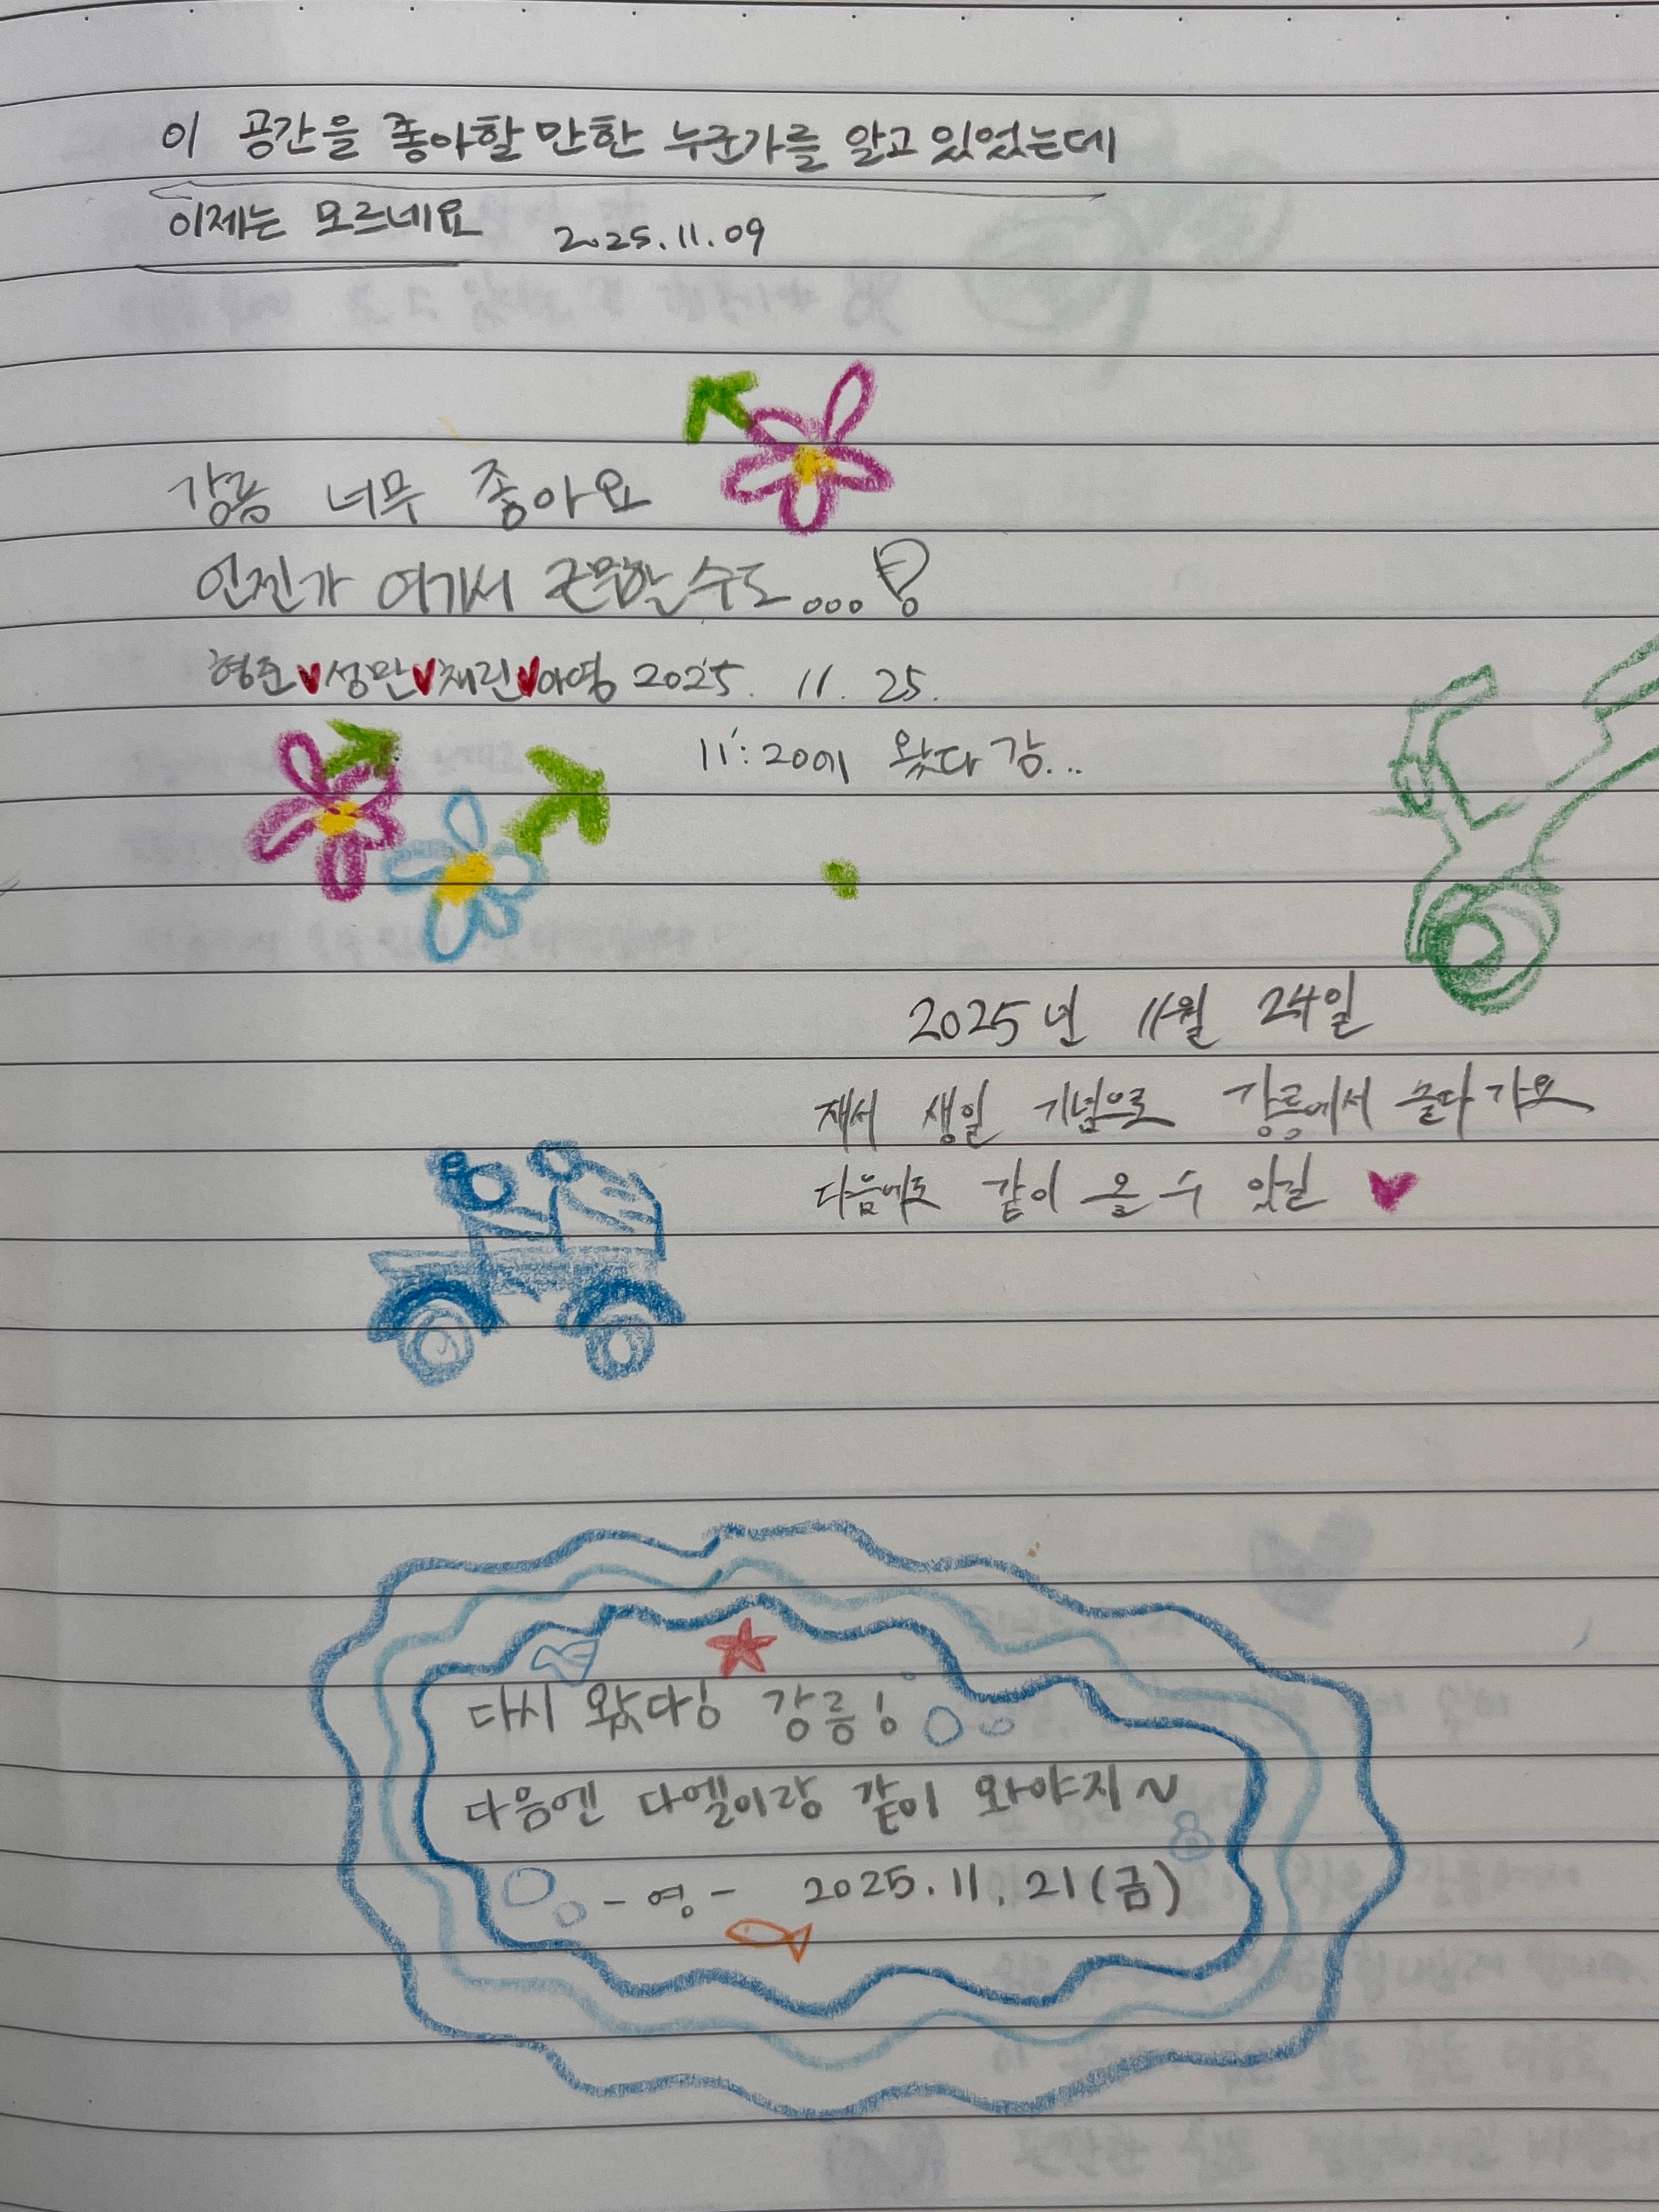 이 공간을 좋아할 만한 누군가를 알고 있었는데
이제는 모르네요 2025.11.09
강릉 너무 좋아요
언젠가 여기서 근무할 수도...!?
형준♥성만♥채린♥아영 2025. 11. 25.
11:20에 왔다 감...
2025년 11월 24일
재서 생일 기념으로 강릉에서 놀다 가요
다음에도 같이 올 수 있길 ♥
다시 왔다! 강릉!
다음엔 다엘이랑 같이 와야지~
-영- 2025.11.21(금)